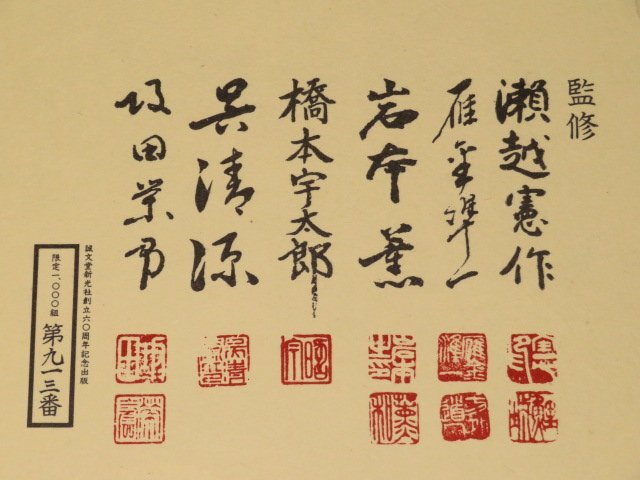 監修
瀬越憲作
雁金準一
岩本薫
橋本宇太郎
呉清源
坂田栄男
誠文堂新光社創立六〇周年記念出版
限定一、〇〇〇組
第九一三番